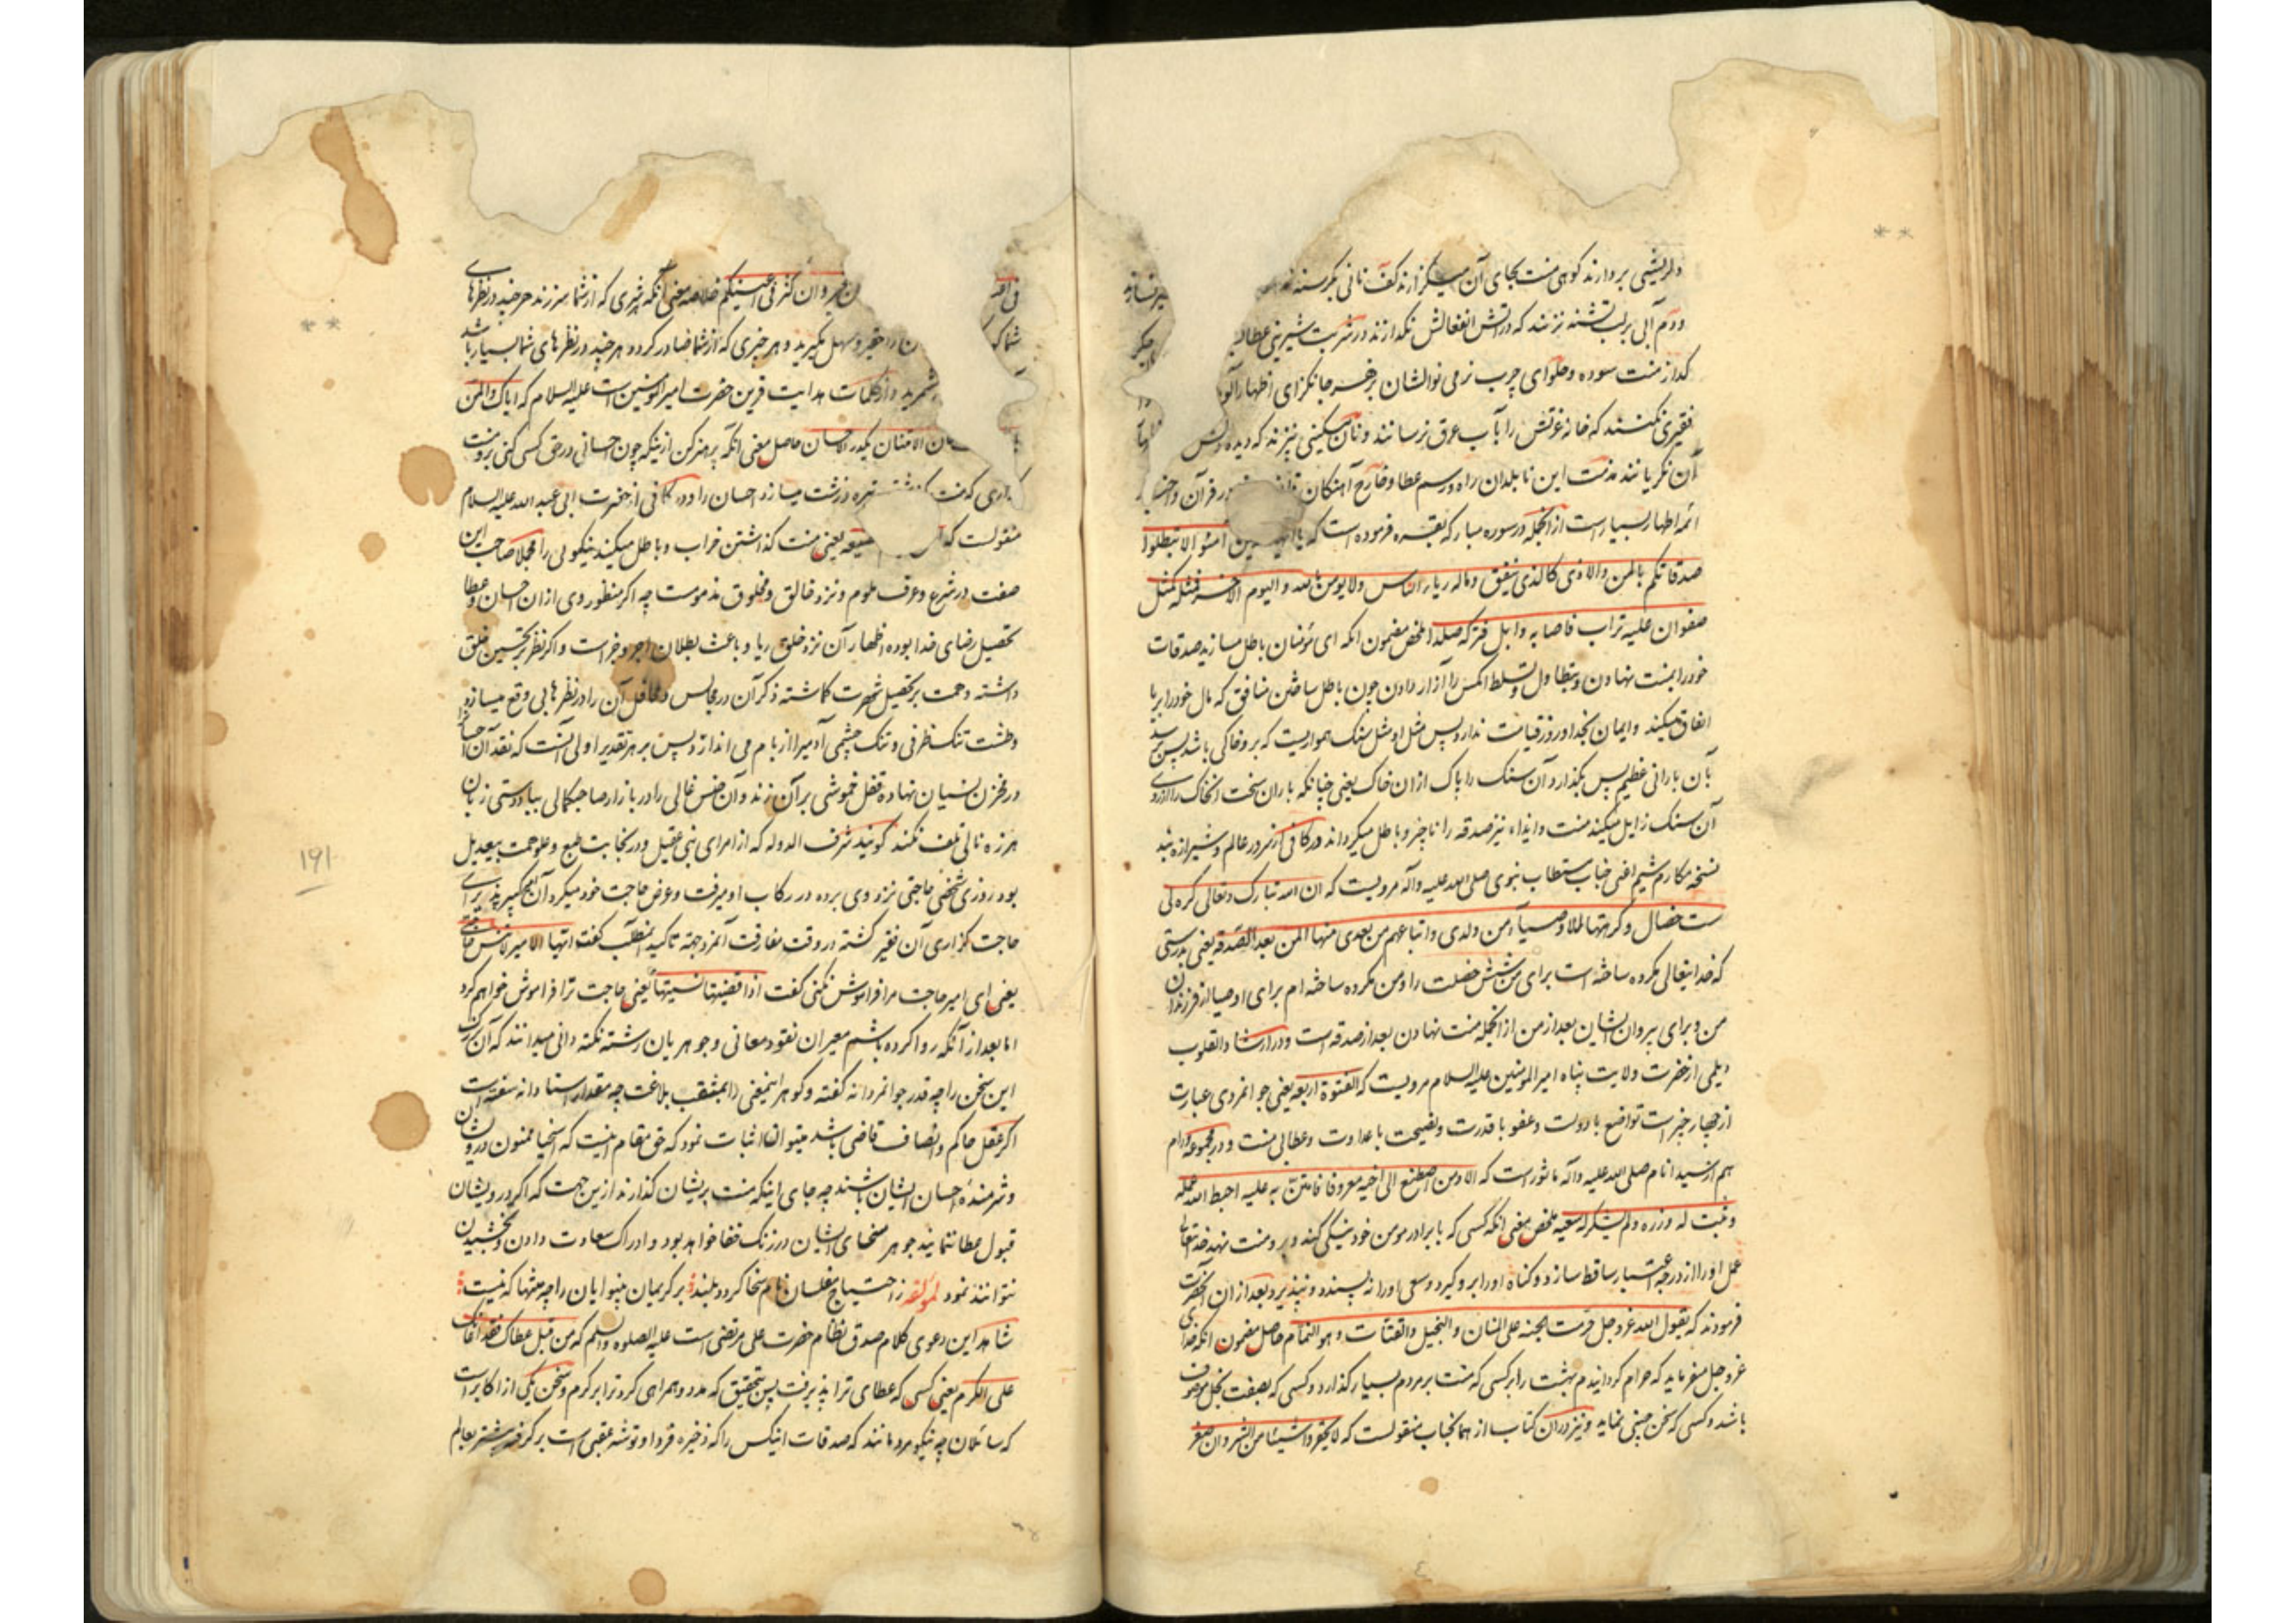 دلریشی بردارند کوهی منت بجای آن میگذارند کف نانی بگرسنه
ودم آبی بر لب تشنه نزنند که در آتش انفعالش نگدازند در شربت شیرینی عطا
گداز منت سوده و حلوای چرب نرمی نوالشان بزهر جانگزای اظهار
فقیری نکنند که خانه عزتش را بآب عرق نرسانند و نان مسکینی نپزند که دیده
آن نگریانند مذمت این نابلدان راه و رسم عطا و خارج آهنگان در قرآن و
ائمه اطهار بسیار است از آنجمله در سوره مبارکه بقره فرموده است که یا امنوا لا تبطلوا
صدقاتکم بالمن والاذی کالذی ینفق ماله ریاء الناس ولا یومن بالله والیوم الاخر فمثله کمثل
صفوان علیه تراب فاصابه وابل فترکه صلدا ملخص مضمون آنکه ای مؤمنان باطل مسازید صدقات
خود را بمنت نهادن و بتطاول و تسلط آنکس را آزار دادن چون باطل ساختن منافق که مال خود را بریا
انفاق میکند و ایمان بخدا و روز قیامت ندارد پس مثل او مثل سنگ همواریست که برو خاکی باشد پس
بآن بارانی عظیم پس بگذارد آن سنگ را پاک از آن خاک یعنی چنانکه باران سخت آنخاک را از روی
آن سنگ زایل میکند منت و ایذاء نیز صدقه را ناچیز و باطل میگرداند در کافی از سرور عالم و شیرازه بند
نسخه مکارم شیم اعنی جناب مستطاب نبوی صلی الله علیه وآله مرویست که ان الله تبارک وتعالی کره لی
ست خصال وکرهتها للاوصیاء من ولدی واتباعهم من بعدی منها المن بعد الصدقه یعنی بدرستی
که خدایتعالی مکروه ساخته است برای من شش خصلت را و من مکروه ساخته ام برای اوصیا از فرزندان
من و برای پیروان ایشان بعد از من از آنجمله منت نهادن بعد از صدقه است و در ارشاد القلوب
دیلمی از حضرت ولایت پناه امیر المومنین علیه السلام مرویست که الفتوة اربعه یعنی جوانمردی عبارت
از چهار چیز است تواضع با دولت و عفو با قدرت و نصیحت با عداوت و عطا بی منت و در مجموعه ورام
هم از سید انام صلی الله علیه وآله ماثور است که الا ومن اصطنع الی اخیه معروفا فامتن به علیه احبط الله عمله
وثبت له وزره ولم یشکر له سعیه ملخص معنی آنکه کسی که با برادر مومن خود نیکی کند و برو منت نهد خدایتعالی
عمل او را از درجه اعتبار ساقط سازد و گناه او را برو گیرد و سعی او را نه پسندد و نپذیرد بعد از آن آنحضرت
فرمودند که یقول الله عز وجل حرمت الجنه علی المنان والبخیل والقتات وهو النمام حاصل مضمون آنکه خدای
عز وجل میفرماید که حرام گردانیدم بهشت را بر کسی که منت بر مردم بسیار گذارد و کسی که بصفت بخل موصوف
باشد و کسی که سخن چینی نماید و نیز در آن کتاب از همانجناب منقولست که لا یحقروا شیئا من الشر وان صغر
فی وان کثر فی اعینکم خلاصه معنی آنکه شری که از شما سر زند هر چند در نظرهای
شما آن را حقیر و سهل مگیرید و هر خیری که از شما صادر گردد هر چند در نظرهای شما بسیار باشد
مشمرید و از کلمات هدایت قرین حضرت امیر المومنین است علیه السلام که ایاک والمن
الامتنان یکدر الاحسان حاصل معنی آنکه پرهیز کن از اینکه چون احسانی در حق کسی کنی برو منت
گذاری که منت تیره و زشت میسازد احسان را و در کافی از حضرت ابی عبد الله علیه السلام
منقولست که یعنی منت گذاشتن خراب و باطل میکند نیکویی را مجملا صاحب این
صفت در شرع و عرف ملوم و نزد خالق و مخلوق مذموست چه اگر منظور وی از آن احسان و عطا
تحصیل رضای خدا بوده اظهار آن نزد خلق ریا و باعث بطلان اجر و جزاست و اگر نظر بر تحسین خلق
داشته و همت بر تحصیل شهرت گماشته ذکر آن در مجالس و محافل آن را در نظرها بی وقع میسازد
و طشت تنک ظرفی و تنک چشمی آدمیرا از بام می اندازد پس بر هر تقدیر اولی آنست که نقد آن احسانرا
در مخزن نسیان نهاده قفل خموشی بر آن زند و آن جنس غالی را در بازار صاحبکمالی بباد دستی زبان
هرزه نالی تلف نکند گویند شرف الدوله که از امرای بنی عقیل و در نجابت طبع و علو همت بیعدیل
بود روزی شخصی حاجتی نزد وی برده در رکاب او میرفت و عرض حاجت خود میکرد آن امیر پذیرای
حاجت گزاری آن فقیر گشته در وقت مفارقت آنمرد جهة تاکید مطلب گفت ایها الامیر لا تنس حاجتی
یعنی ای امیر حاجت مرا فراموش نکنی گفت اذا قضیتها نسیتها یعنی حاجت ترا فراموش خواهم کرد
اما بعد از آنکه روا کرده باشم معیران نقود معانی و جوهریان رشته نکته دانی میدانند که آن رکن
این سخن را چه قدر جوانمردانه گفته و گوهر اینمعنی را بمثقب بلاغت چه مقدار استادانه سفته است
اگر عقل حاکم و انصاف قاضی باشد میتوان اثبات نمود که حق مقام اینست که اسخیا ممنون درویشان
و شرمنده احسان ایشان باشند چه جای اینکه منت بریشان گذارند ازین جهت که اگر درویشان
قبول عطا ننمایند جوهر سخای ایشان در زنگ خفا خواهد بود و ادراک سعادت دادن و بخشیدن
نتوانند نمود لمؤلفه ز احتیاج مفلسان نام سخا گردد بلند بر کریمان بینوایان را چه منتها که نیست
شاهد این دعوی کلام صدق نظام حضرت علی مرتضی است علیه الصلوه والسلم که من قبل عطاک فقد اعانک
علی الکرم یعنی کسی که عطای ترا پذیرفت پس بتحقیق که مدد و همراهی کرد ترا بر کرم و سخن یکی از اکابر است
که سائلان چه نیکو مردمانند که صدقات اینکس را که ذخیره فردا و توشه عقبی است بر گرفته بیشتر بعالم
۱۹۱